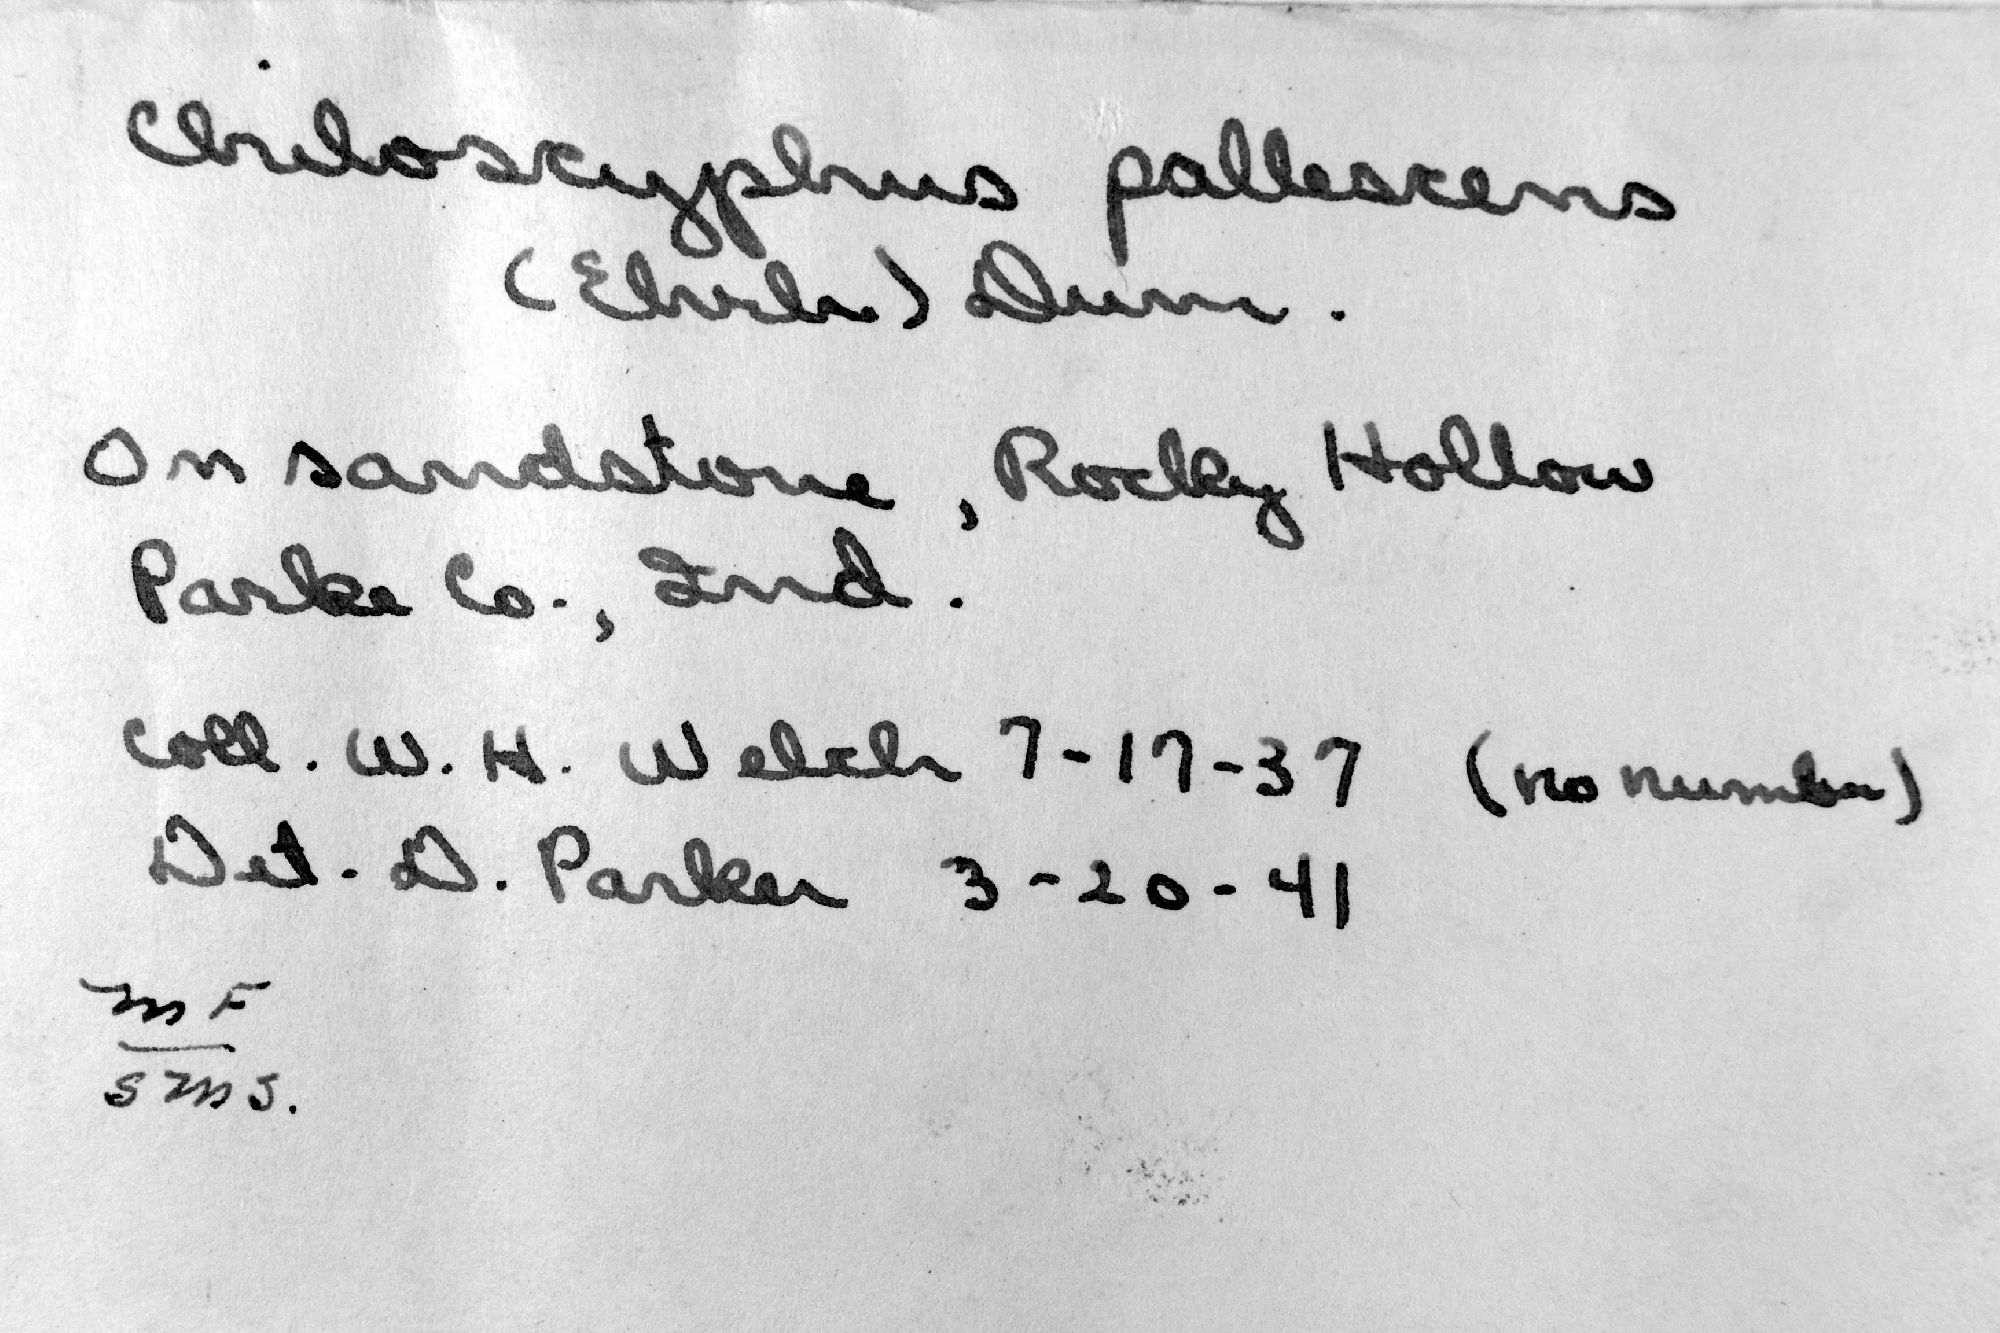 Chiloscyphus pallescens
(Ehrh.) Dum.
On sandstone, Rocky Hollow
Parke Co., Ind.
Coll. W. H. Welch 7-17-37 (no number)
Det. D. Parker 3-20-41
MF
SMS.